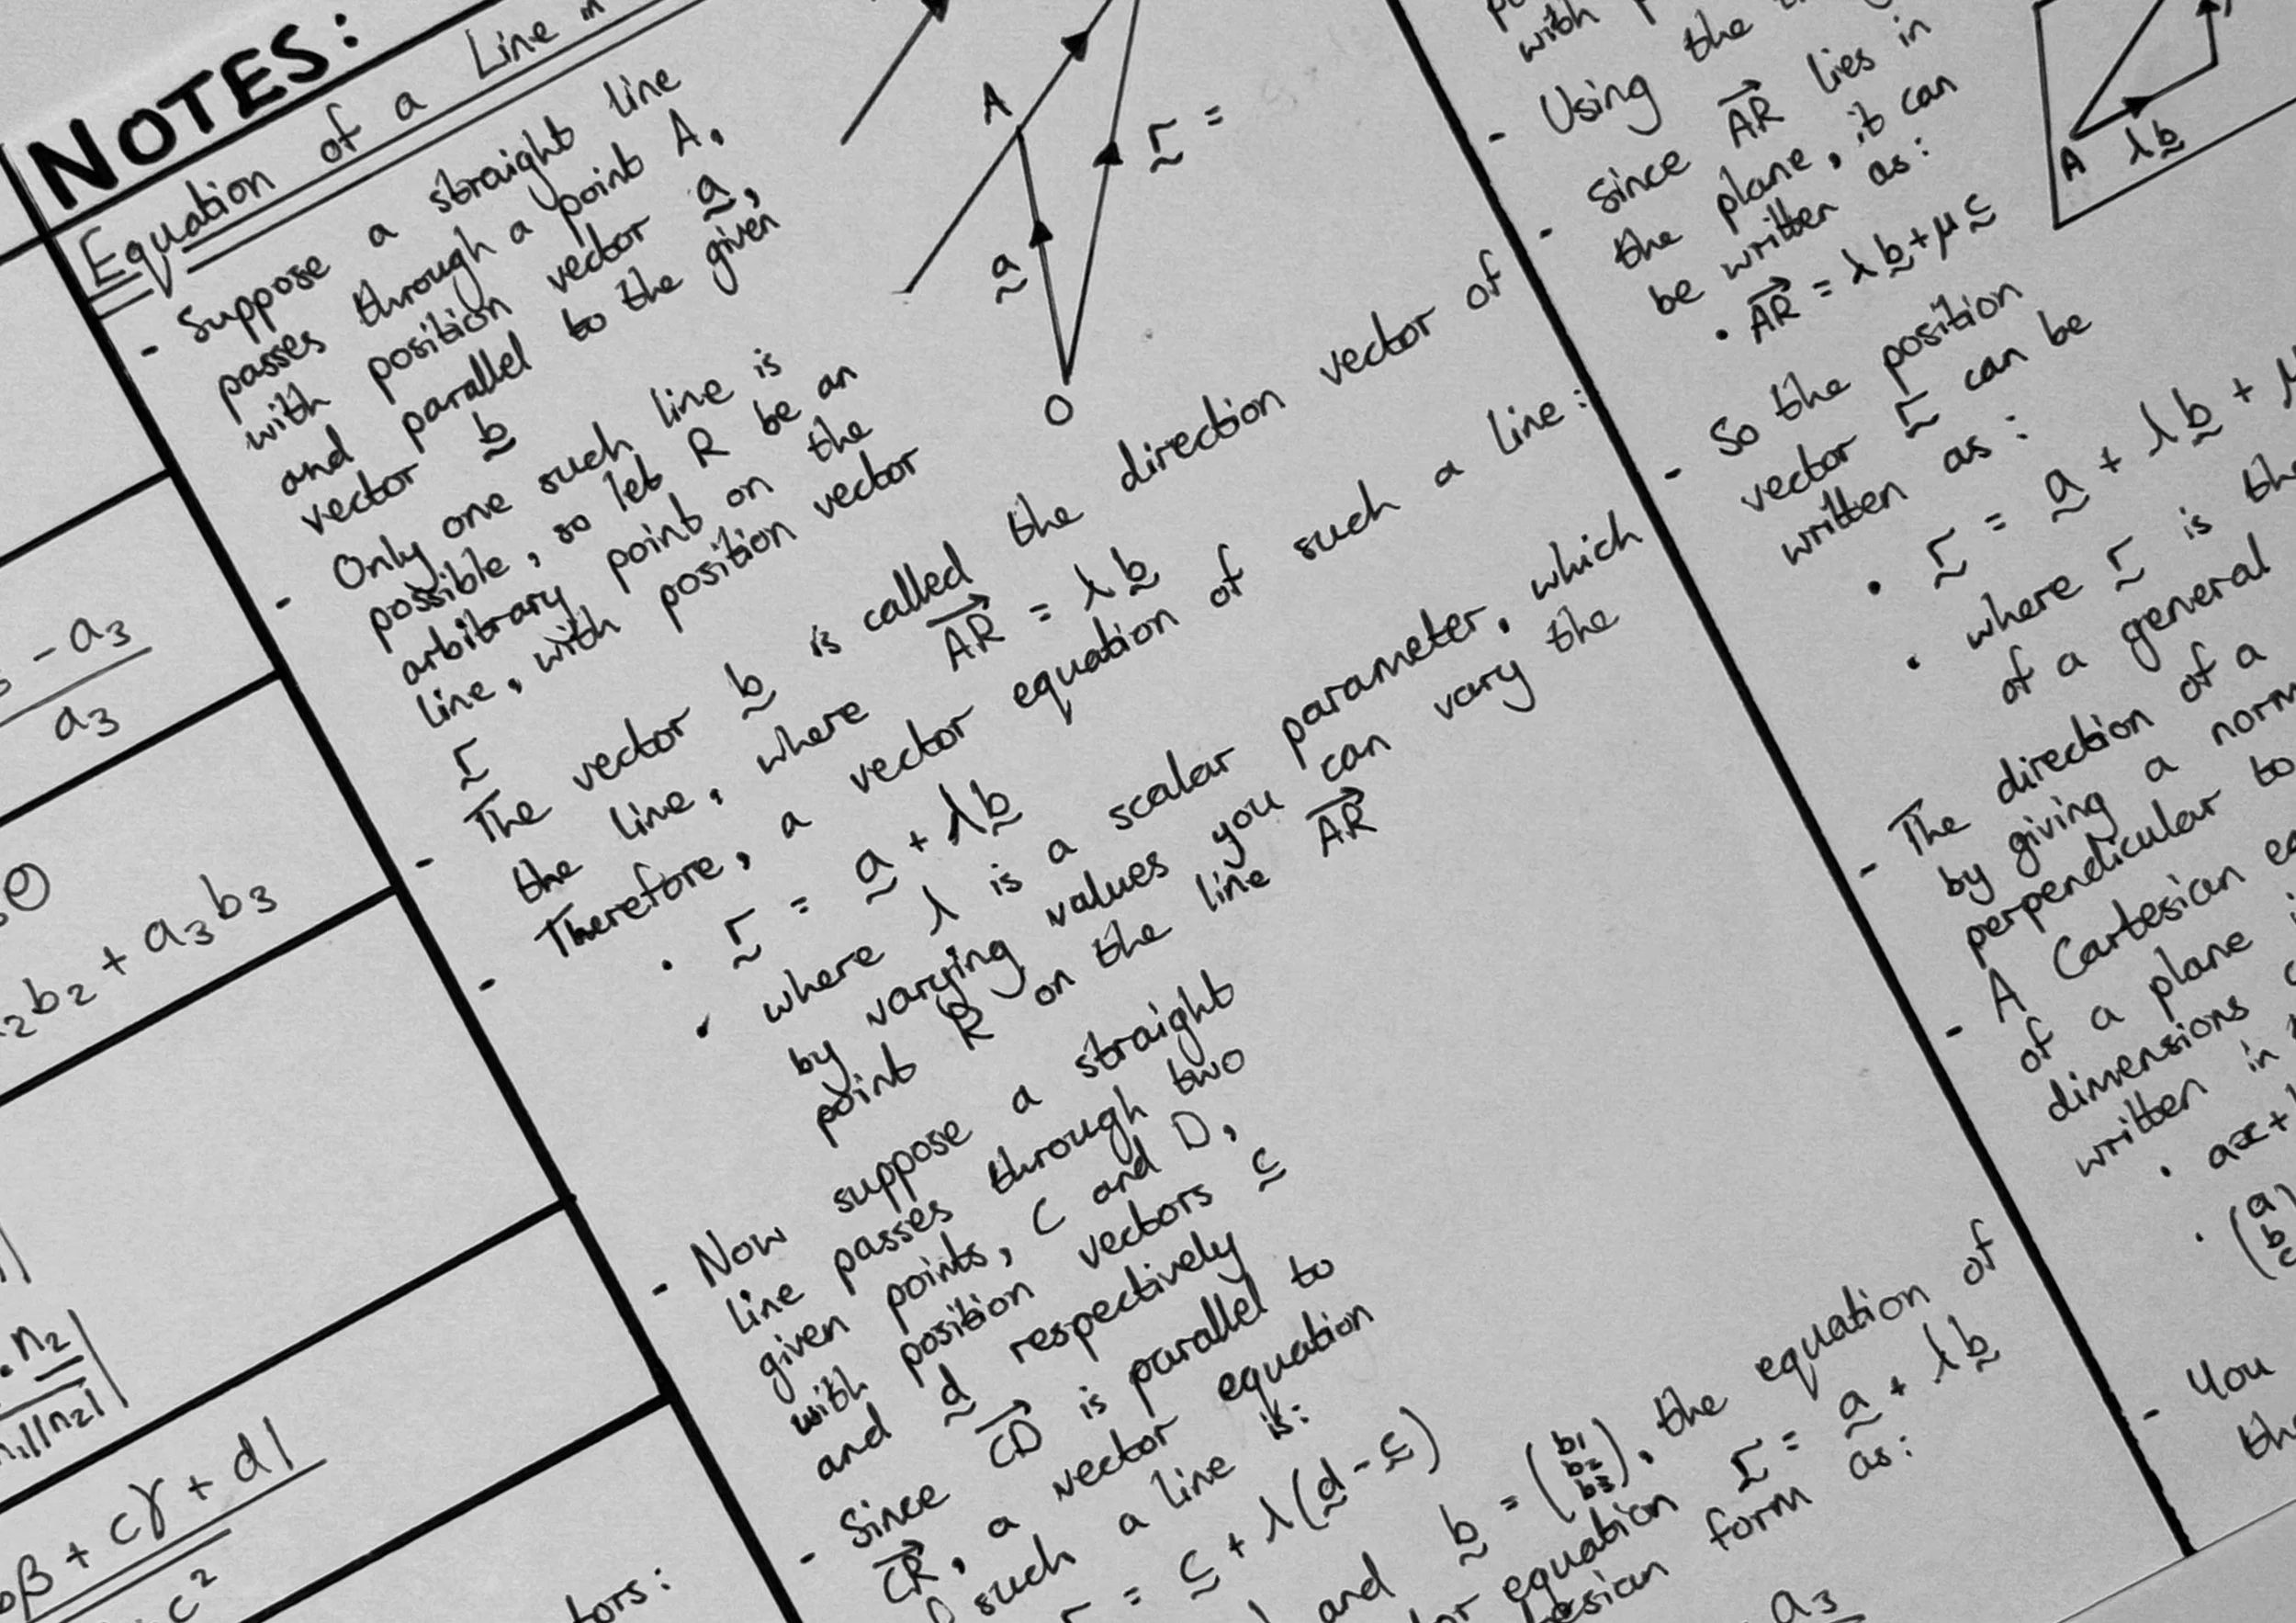 NOTES:
Equation of a Line in
- Suppose a straight line
passes through a point A,
with position vector a,
and parallel to the given
vector b
- Only one such line is
possible, so let R be an
arbitrary point on the
line, with position vector
r
- The vector b is called the direction vector of
the line, where AR = λb
- Therefore, a vector equation of such a line:
• r = a + λb
• where λ is a scalar parameter, which
by varying values you can vary the
point R on the line AR
- Now suppose a straight
line passes through two
given points, C and D,
with position vectors c
and d respectively
- Since CD is parallel to
CR, a vector equation
such a line is:
= c + λ(d - c)
and b = (b1 b2 b3), the equation of
equation r = a + λb
form as:
a3
A
a
O
r =
with
- Using the
- Since AR lies in
the plane, it can
be written as:
• AR = λb + μc
- So the position
vector r can be
written as:
• r = a + λb + μ
• where r is the
of a general
- The direction of a
by giving a norm
perpendicular to
- A Cartesian eq
of a plane
dimensions
written in
• ax +
• (a b c
- You
the
A
λb
- a3
a3
θ
2b2 + a3b3
. n2
|n1||n2|
β + cγ + d|
c²
tors: